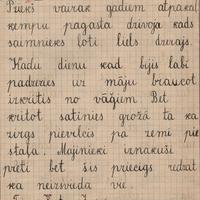 Prieks vairak gadiem atpakaļ
ķempu pagasta dzivoja kads
saimnieks ļoti liels dzerajs.
Kadu dienu kad bijis labi
padzeries un māju braucot
izkritis no vāģiem. Bet
kritot satinies grožā ta ka
zirgs pievilcis pa zemi pie
staļa. Majinieki iznakuši
prēti bet šis priecigs redzat
ka neizsveda vie